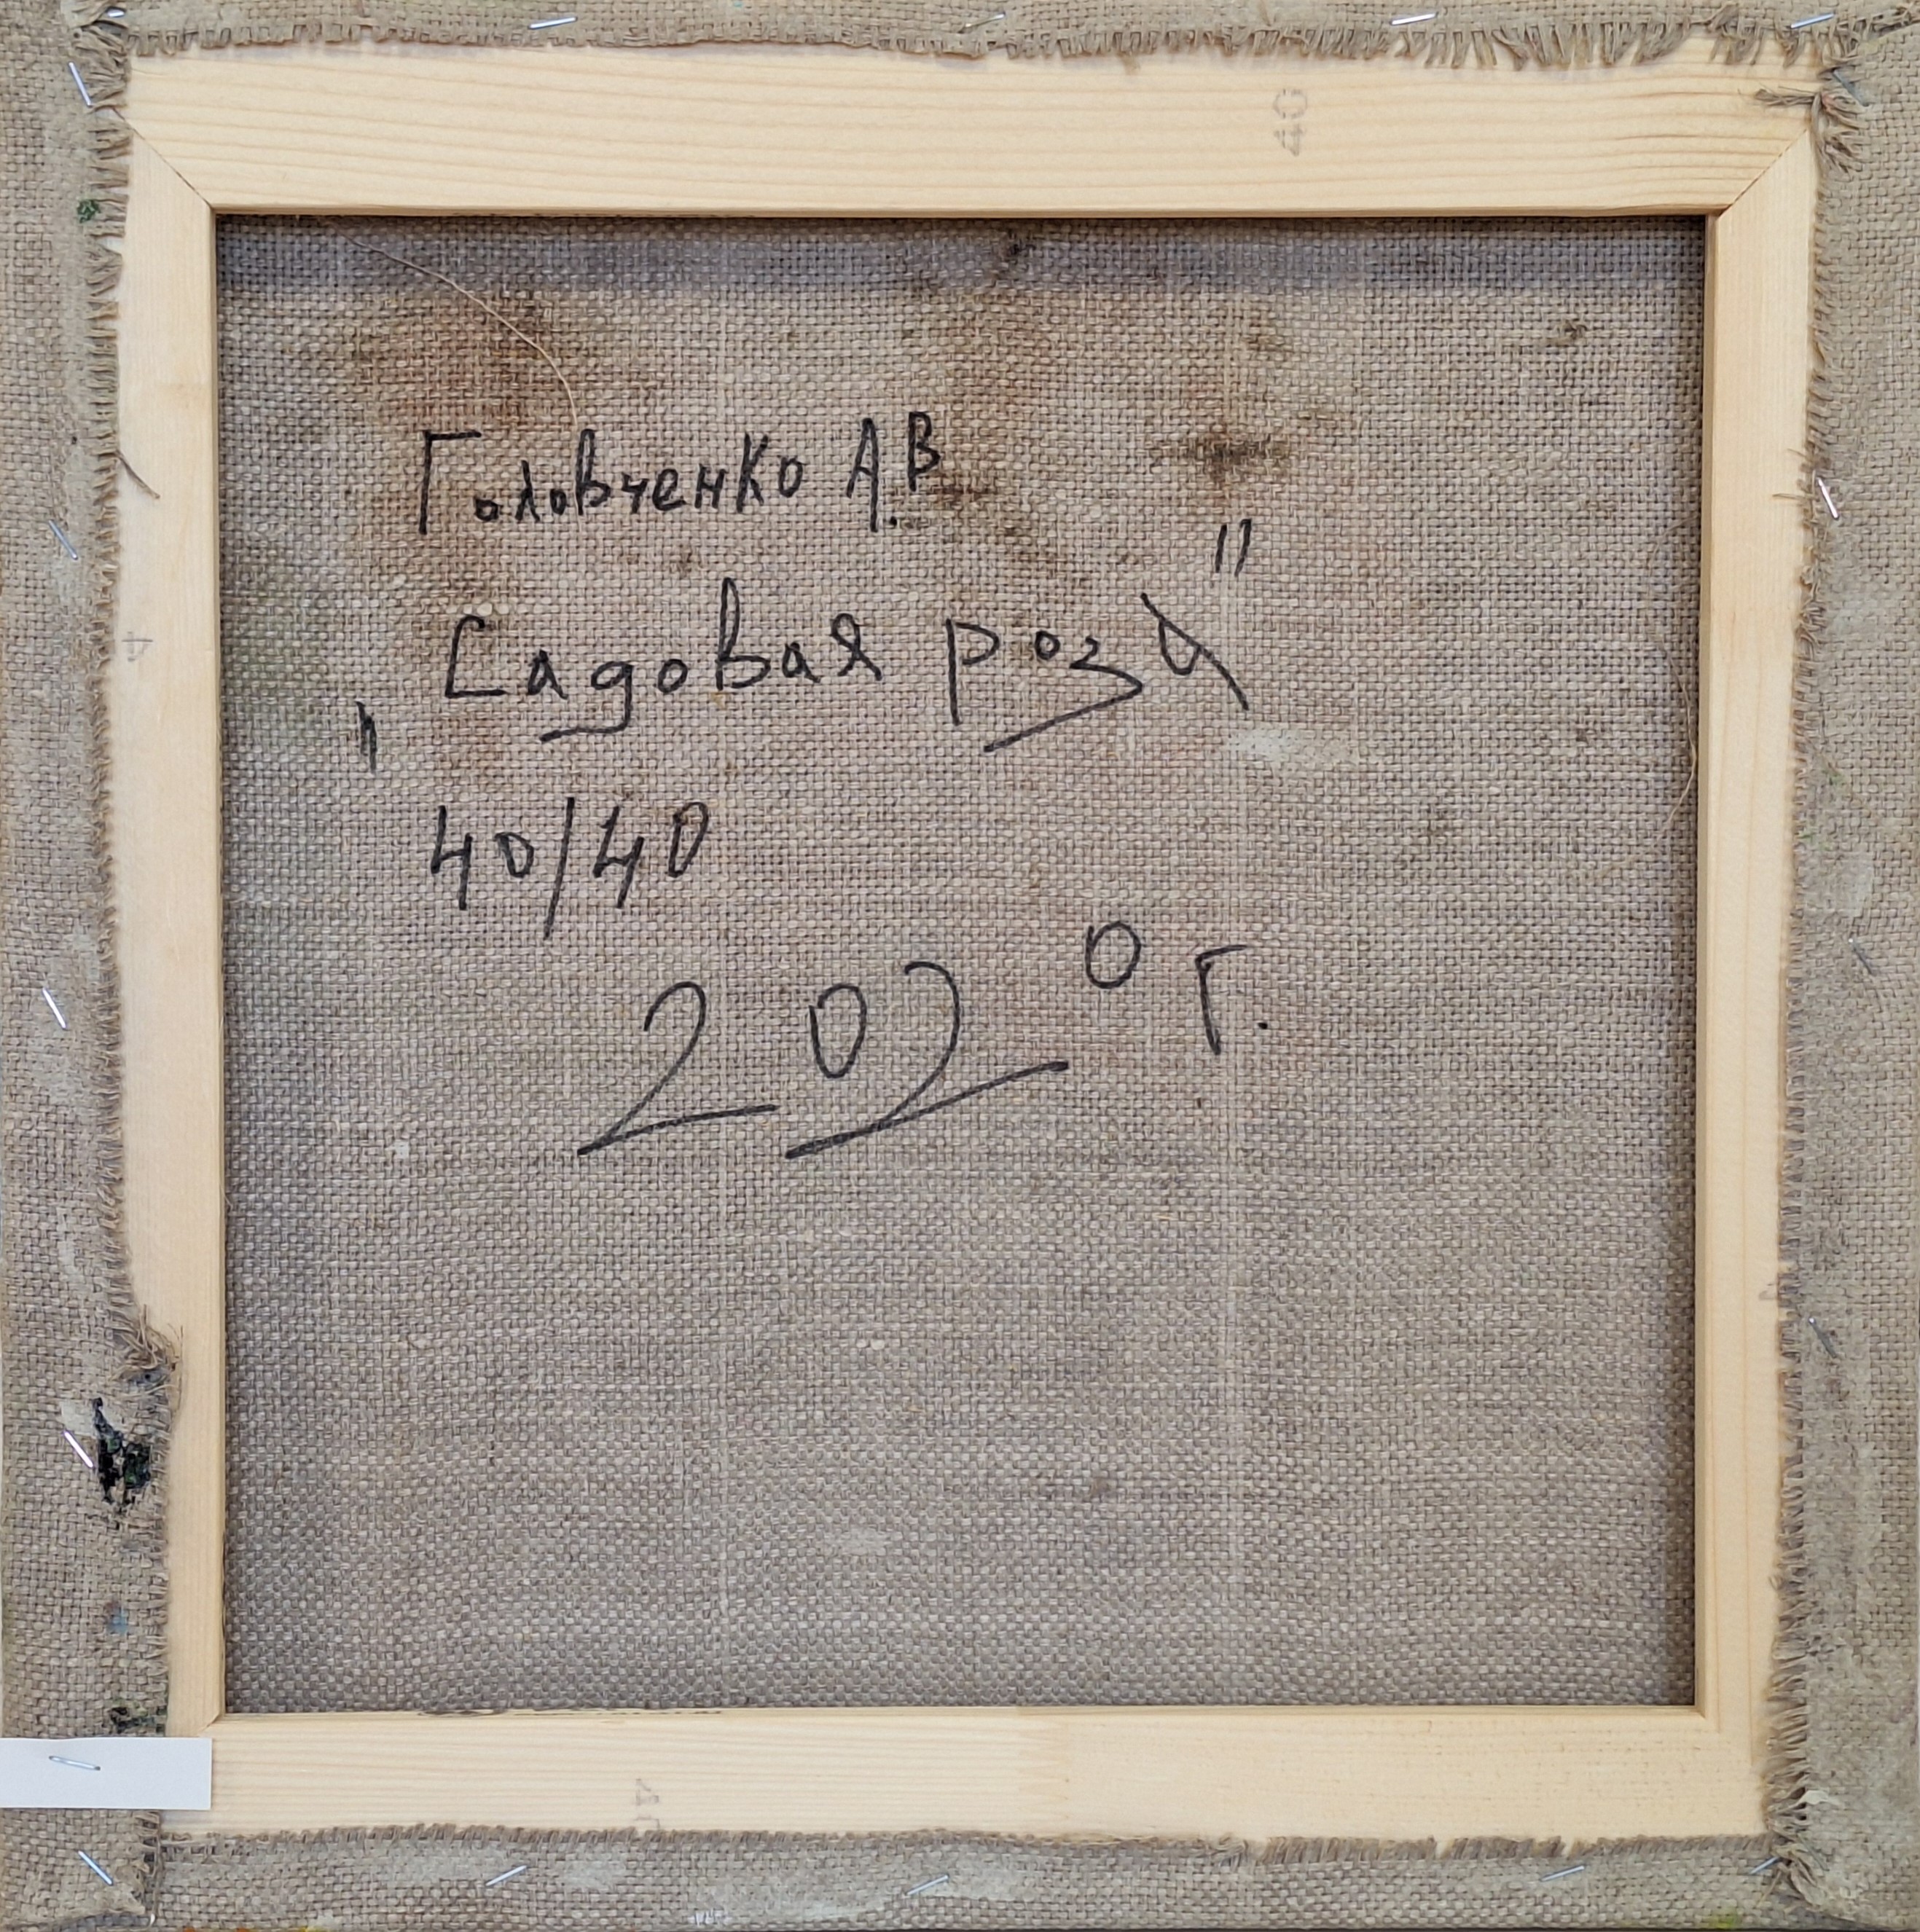 40
Головченко А.В
„Садовая роза"
40/40
2020 г.